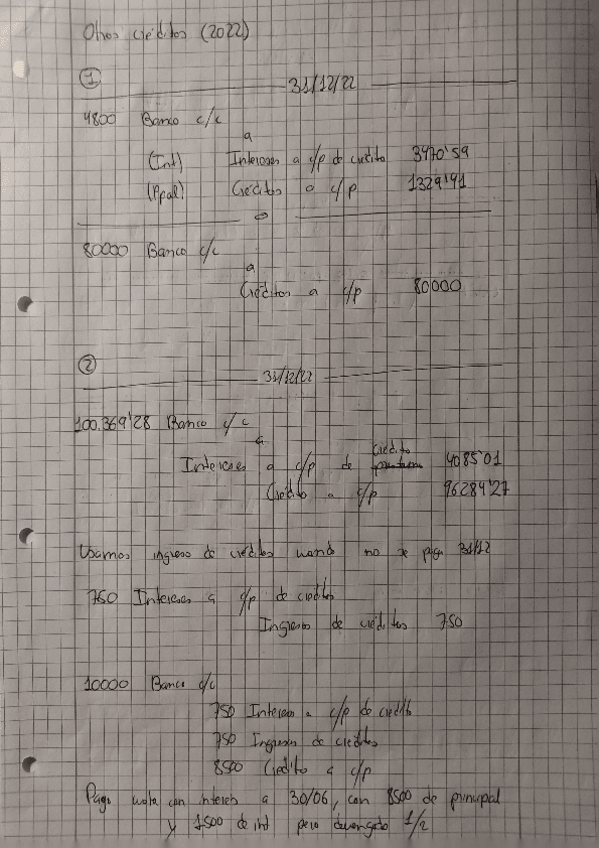 Otros créditos (2022)
①
31/12/22
4800 Banco c/c
a
(Int) Intereses a c/p de credito 3470'59
(Ppal) Créditos a c/p 1329'41
80000 Banco c/c
a
Créditos a c/p 80000
②
31/12/22
100.369'28 Banco c/c
a
Intereses a c/p de credito 4085'01
Credito a c/p 96284'27
Usamos ingreso de créditos cuando no se paga 31/12
750 Intereses a c/p de creditos
Ingresos de créditos 750
10000 Banco c/c
750 Intereses a c/p de credito
750 Ingresos de creditos
8500 Credito a c/p
Pago cuota con interés a 30/06, con 8500 de principal
y 1500 de int pero devengado 1/2